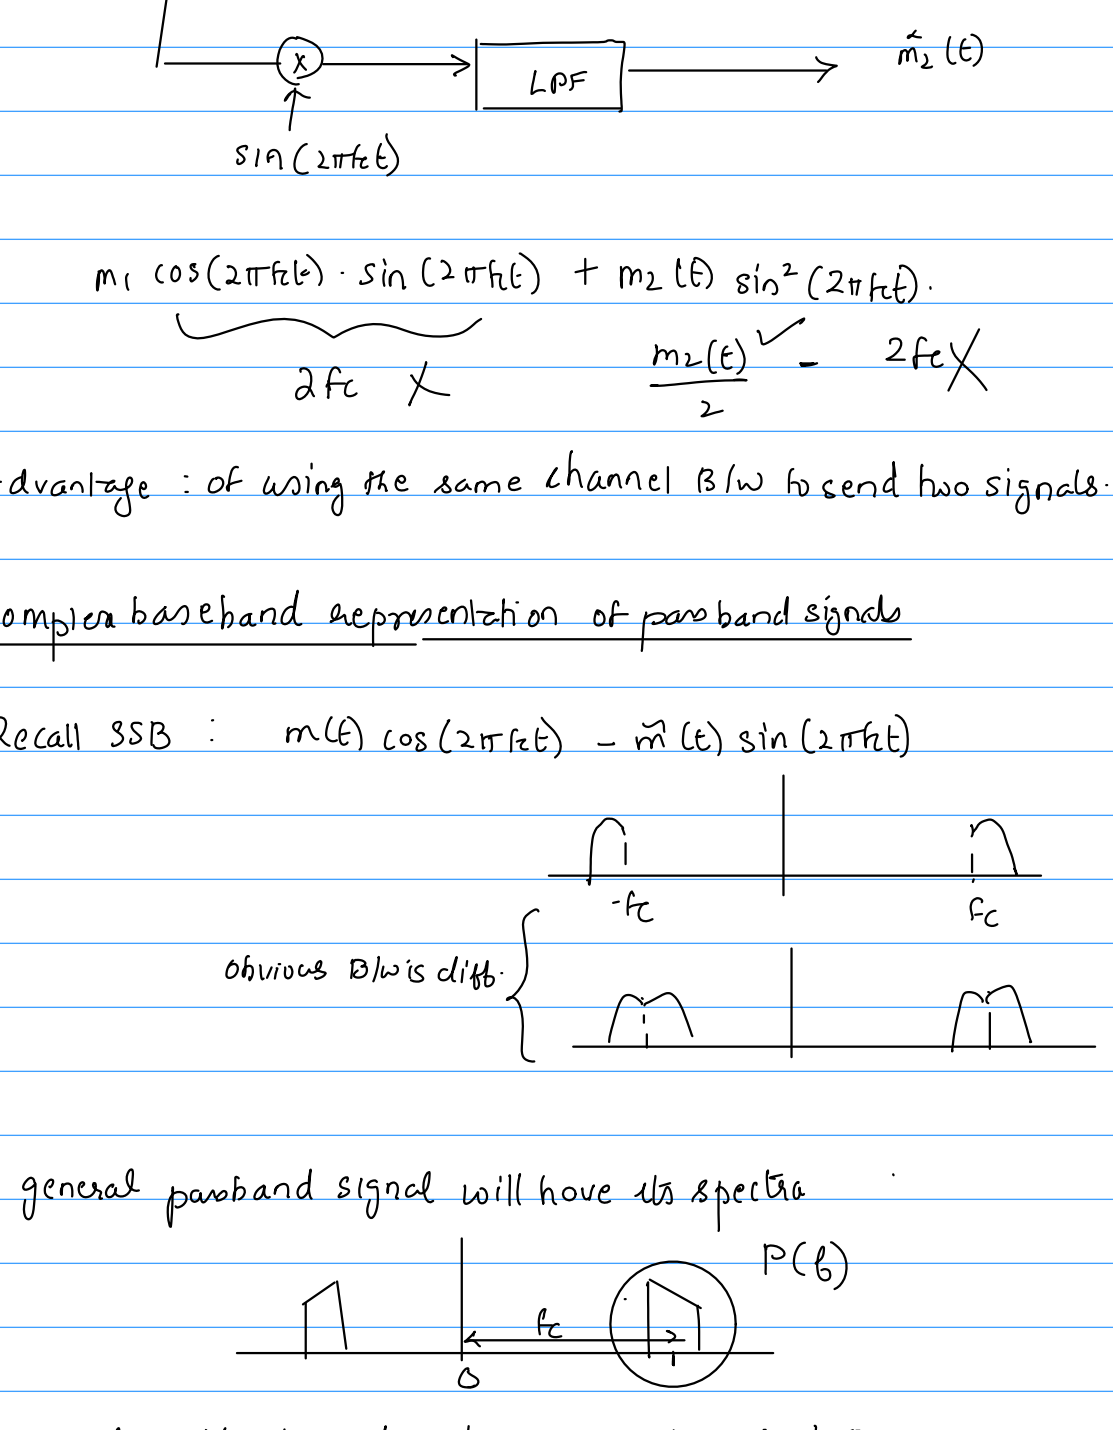 x
LPF
m̂₂(t)
sin(2πfct)
m₁ cos(2πfct) · sin(2πfct) + m₂(t) sin²(2πfct).
2fc X
m₂(t)/2 ✓ - 2fc X
dvantage : of using the same channel B/W to send two signals.
omplex baseband representation of passband signals
Recall SSB : m(t) cos(2πfct) - m̆(t) sin(2πfct)
-fc fc
obvious B/W is diff.
general passband signal will have its spectra
P(f)
fc
0